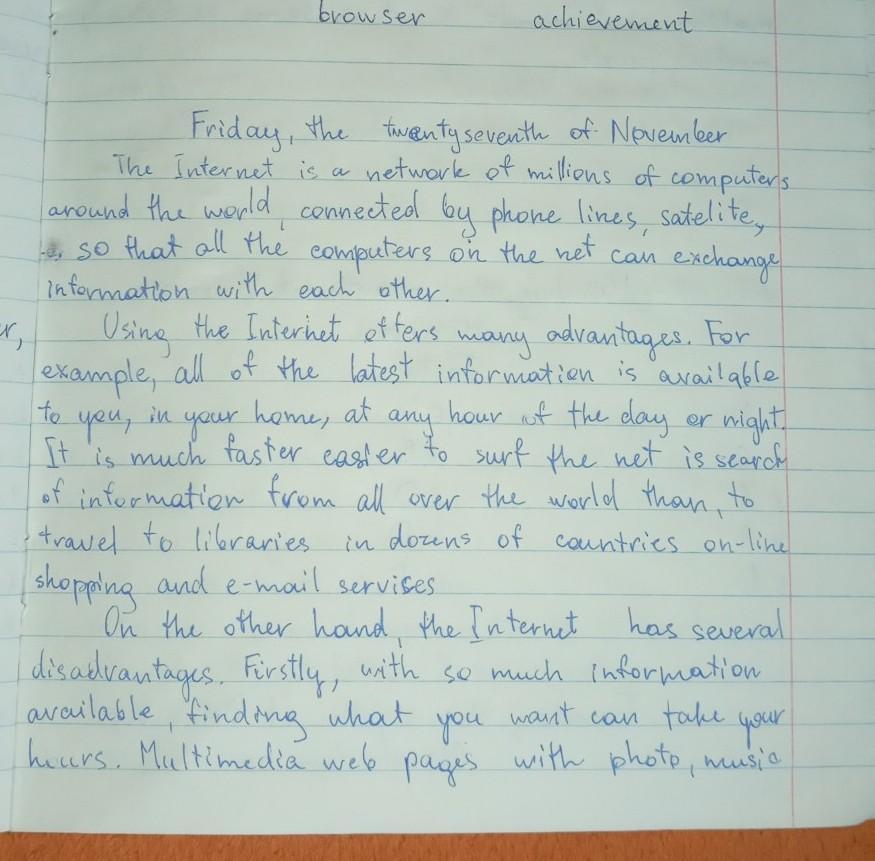 browser achievement
Friday, the twentyseventh of November
The Internet is a network of millions of computers
around the world, connected by phone lines, satelite,
so that all the computers on the net can exchange
information with each other.
r,
Using the Internet offers many advantages. For
example, all of the latest information is available
to you, in your home, at any hour of the day or night.
It is much faster easier to surf the net is search
of information from all over the world than, to
travel to libraries in dozens of countries on-line
shopping and e-mail servises
On the other hand, the Internet has several
disadvantages. Firstly, with so much information
available, finding what you want can take your
hours. Multimedia web pages with photo, music